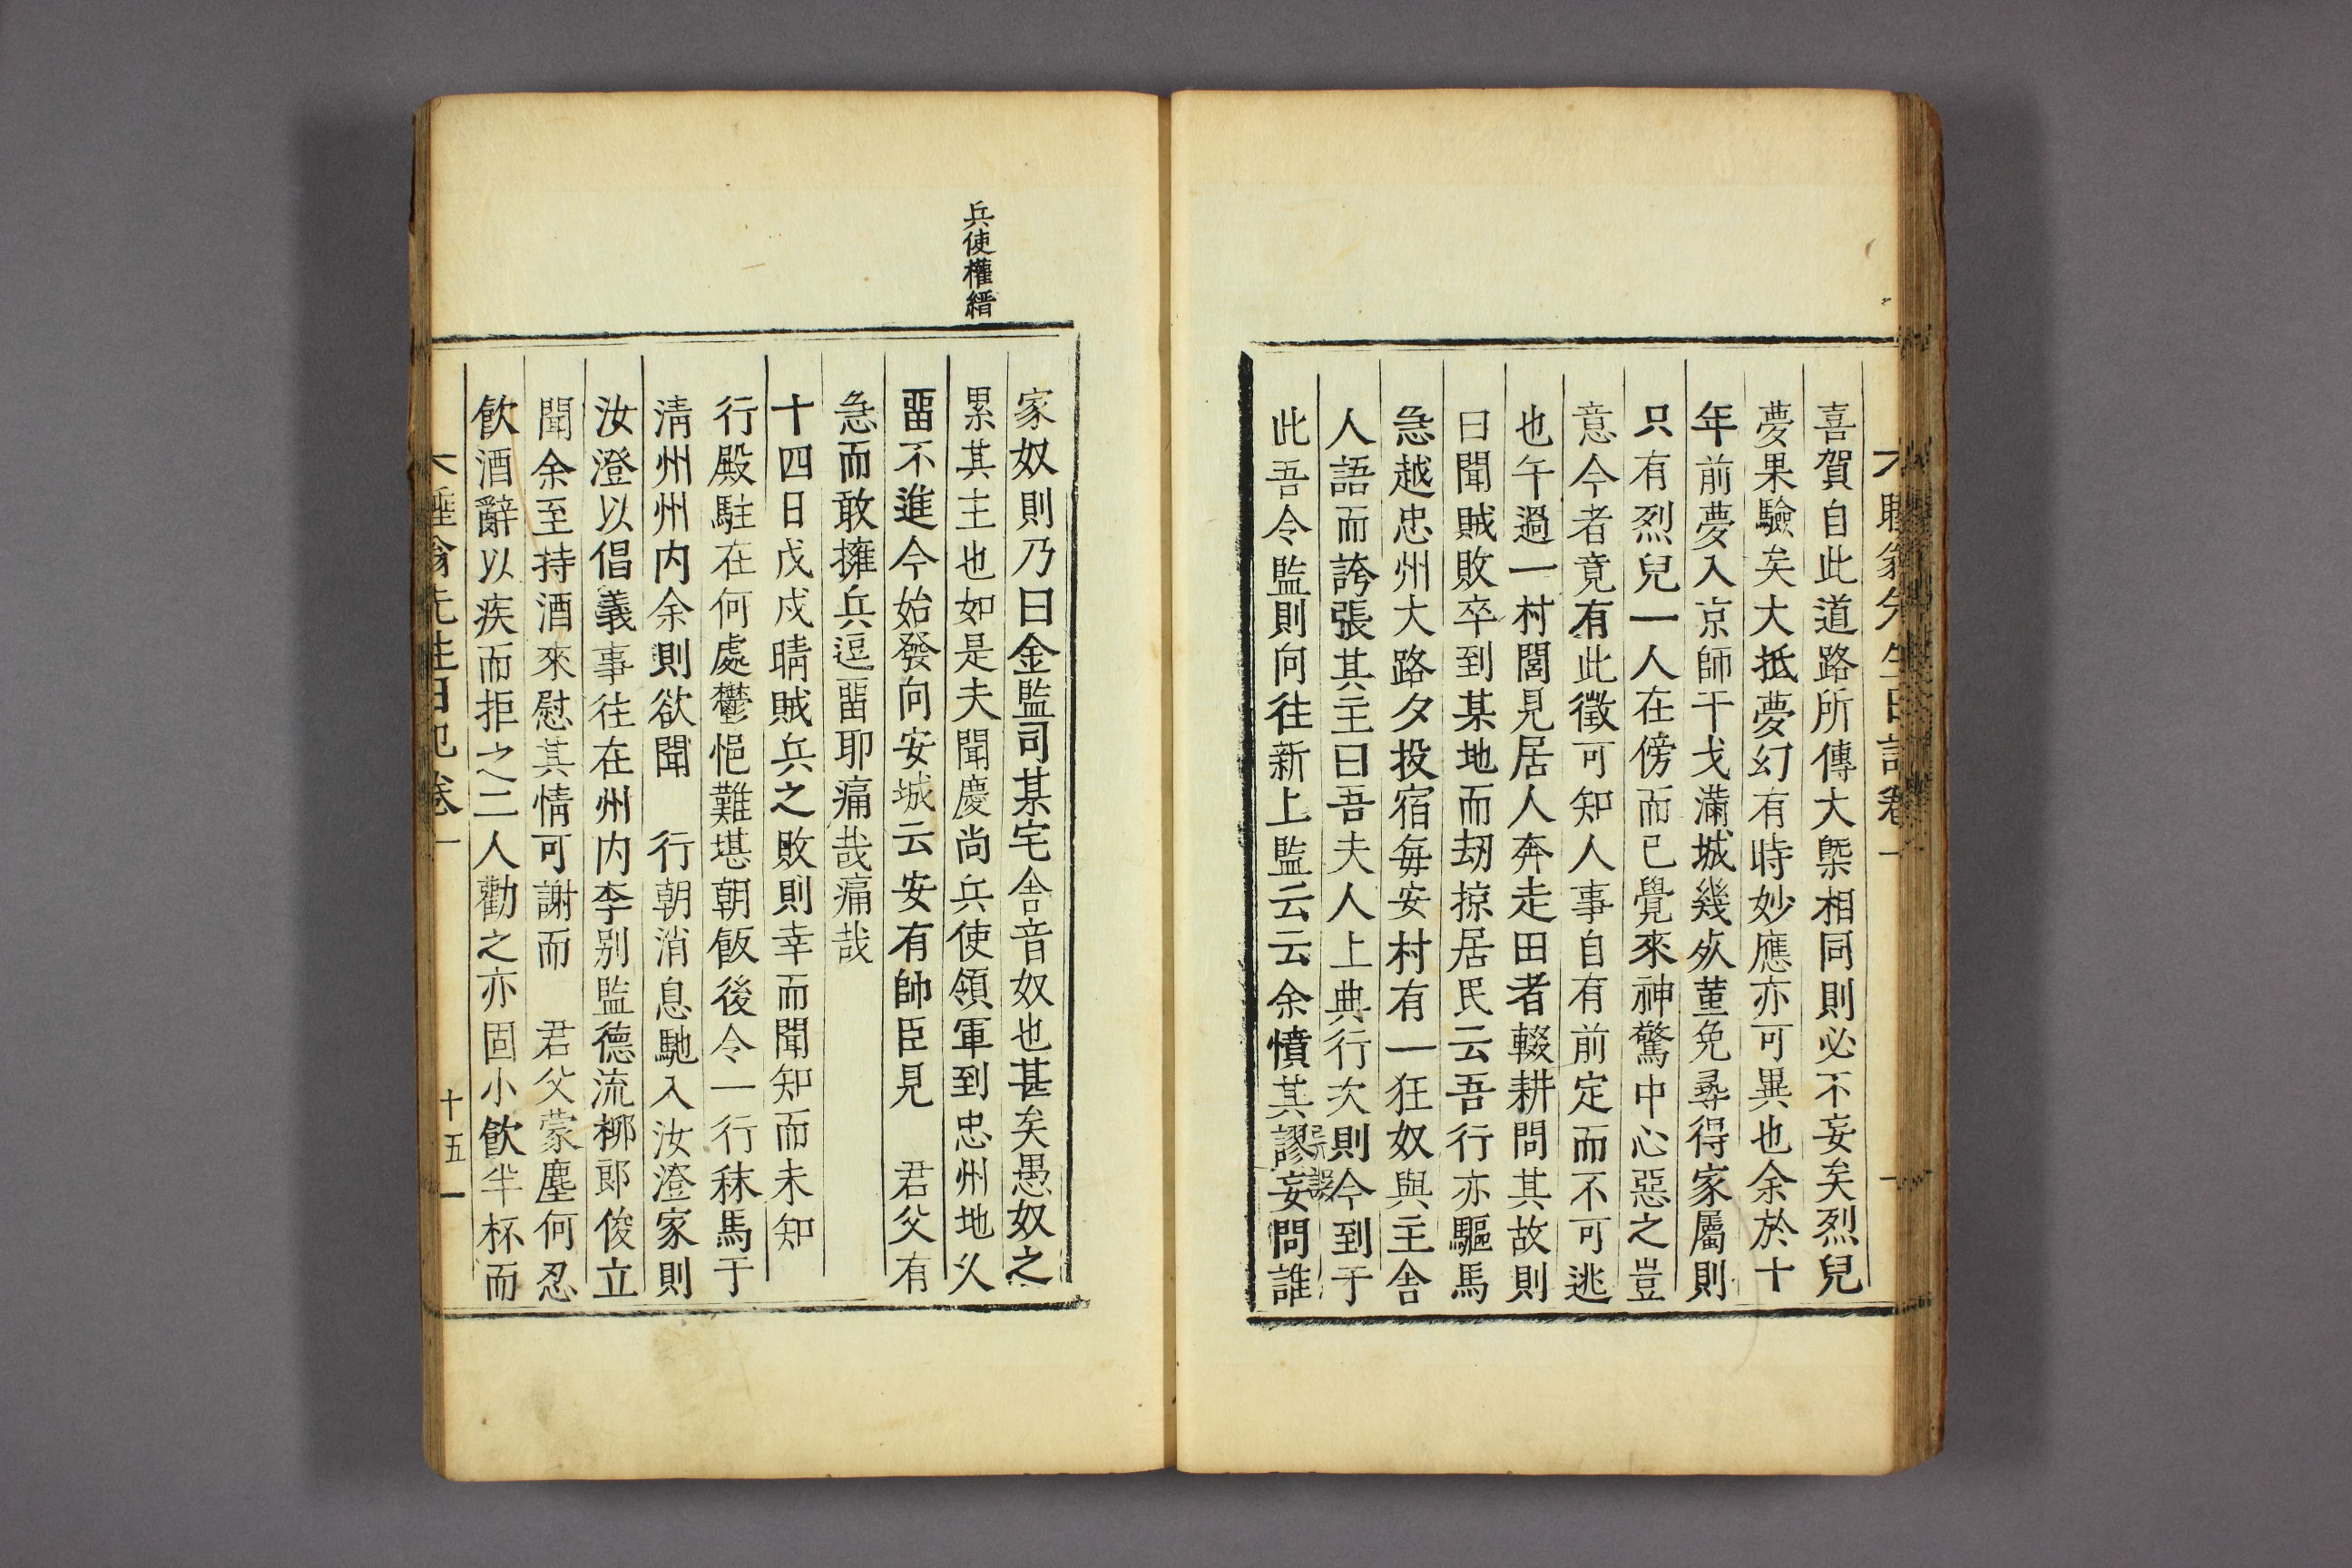 不睡翁先生日記卷一
喜賀自此道路所傳大槩相同則必不妄矣烈兒
夢果驗矣大抵夢幻有時妙應亦可異也余於十
年前夢入京師干戈滿城幾㱕董免尋得家屬則
只有烈兒一人在傍而已覺來神驚中心惡之豈
意今者竟有此徵可知人事自有前定而不可逃
也午過一村閭見居人奔走田者輟耕問其故則
曰聞賊敗卒到某地而刼掠居民云吾行亦驅馬
急越忠州大路夕投宿毎安村有一狂奴與主舍
人語而誇張其主曰吾夫人上典行次則今到于
此吾令監則向往新上監云云余憤其謬妄問誰
兵使權縉
家奴則乃曰金監司某宅舍音奴也甚矣愚奴之
累其主也如是夫聞慶尚兵使領軍到忠州地久
畱不進今始發向安城云安有帥臣見　君父有
急而敢擁兵逗畱耶痛哉痛哉
十四日戊戌晴賊兵之敗則幸而聞知而未知
行殿駐在何處鬱悒難堪朝飯後令一行秣馬于
淸州州内余則欲聞　行朝消息馳入汝澄家則
汝澄以倡義事往在州内李别監德流柳郎俊立
聞余至持酒來慰其情可謝而　君父蒙塵何忍
飮酒辭以疾而拒之二人勸之亦固小飮半杯而
不睡翁先生日記卷一
十五